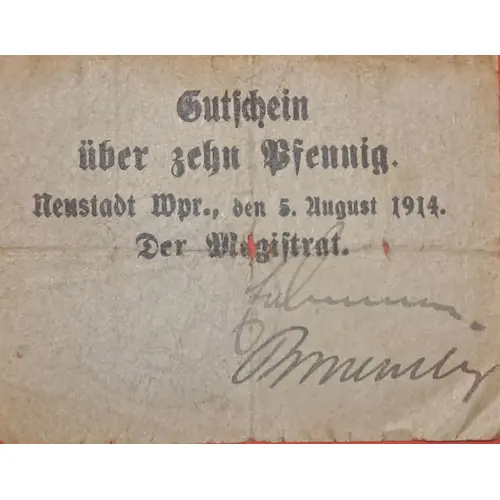 Gutschein
über zehn Pfennig.
Neustadt Wpr., den 5. August 1914.
Der Magistrat.